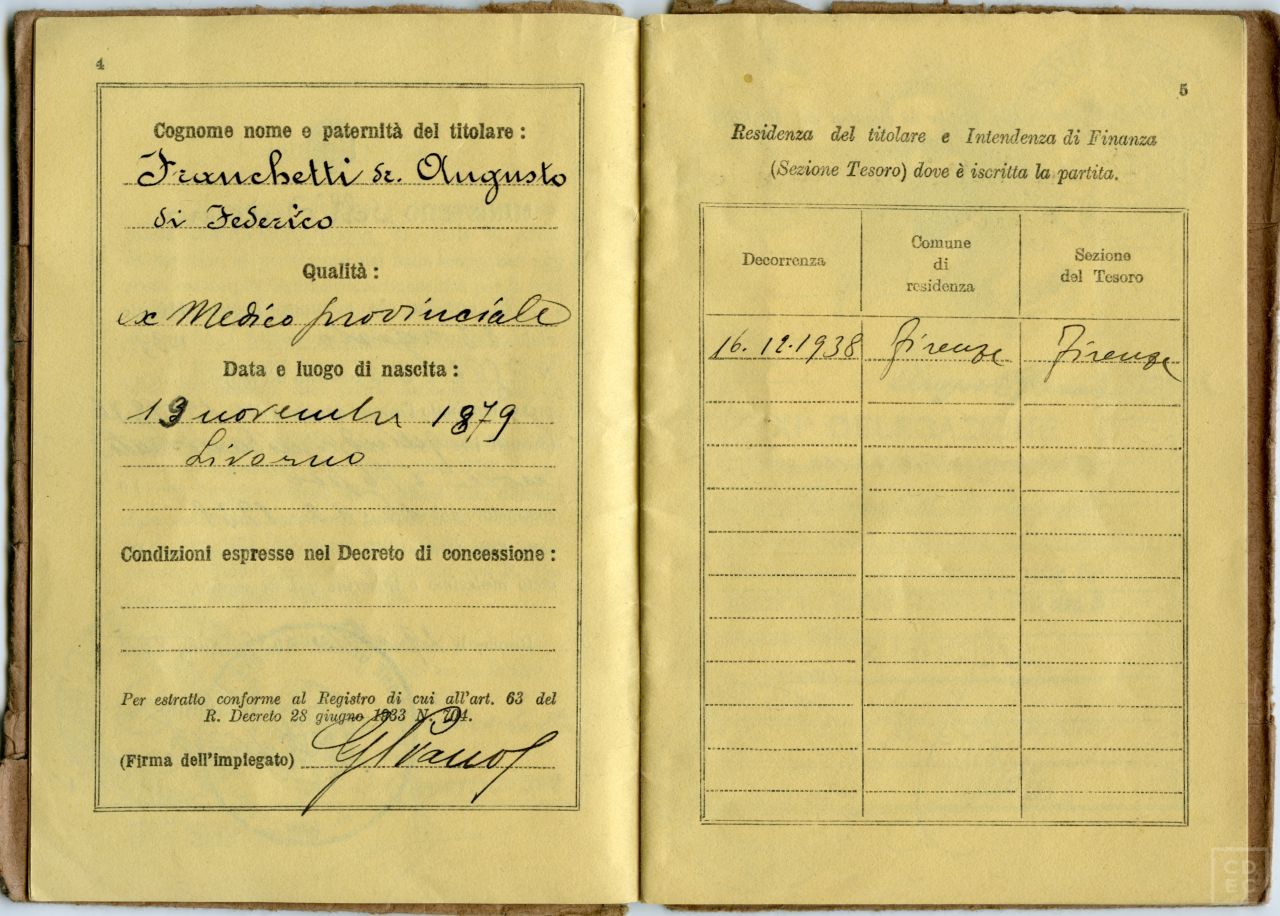 4
Cognome nome e paternità del titolare :
Franchetti dr. Augusto
di Federico
Qualità :
ex Medico provinciale
Data e luogo di nascita :
19 novembre 1879
Livorno
Condizioni espresse nel Decreto di concessione :
Per estratto conforme al Registro di cui all'art. 63 del
R. Decreto 28 giugno 1933 N. 704.
(Firma dell'impiegato)
5
Residenza del titolare e Intendenza di Finanza
(Sezione Tesoro) dove è iscritta la partita.
Decorrenza
Comune
di
residenza
Sezione
del Tesoro
16.12.1938 Firenze Firenze
CD
EC